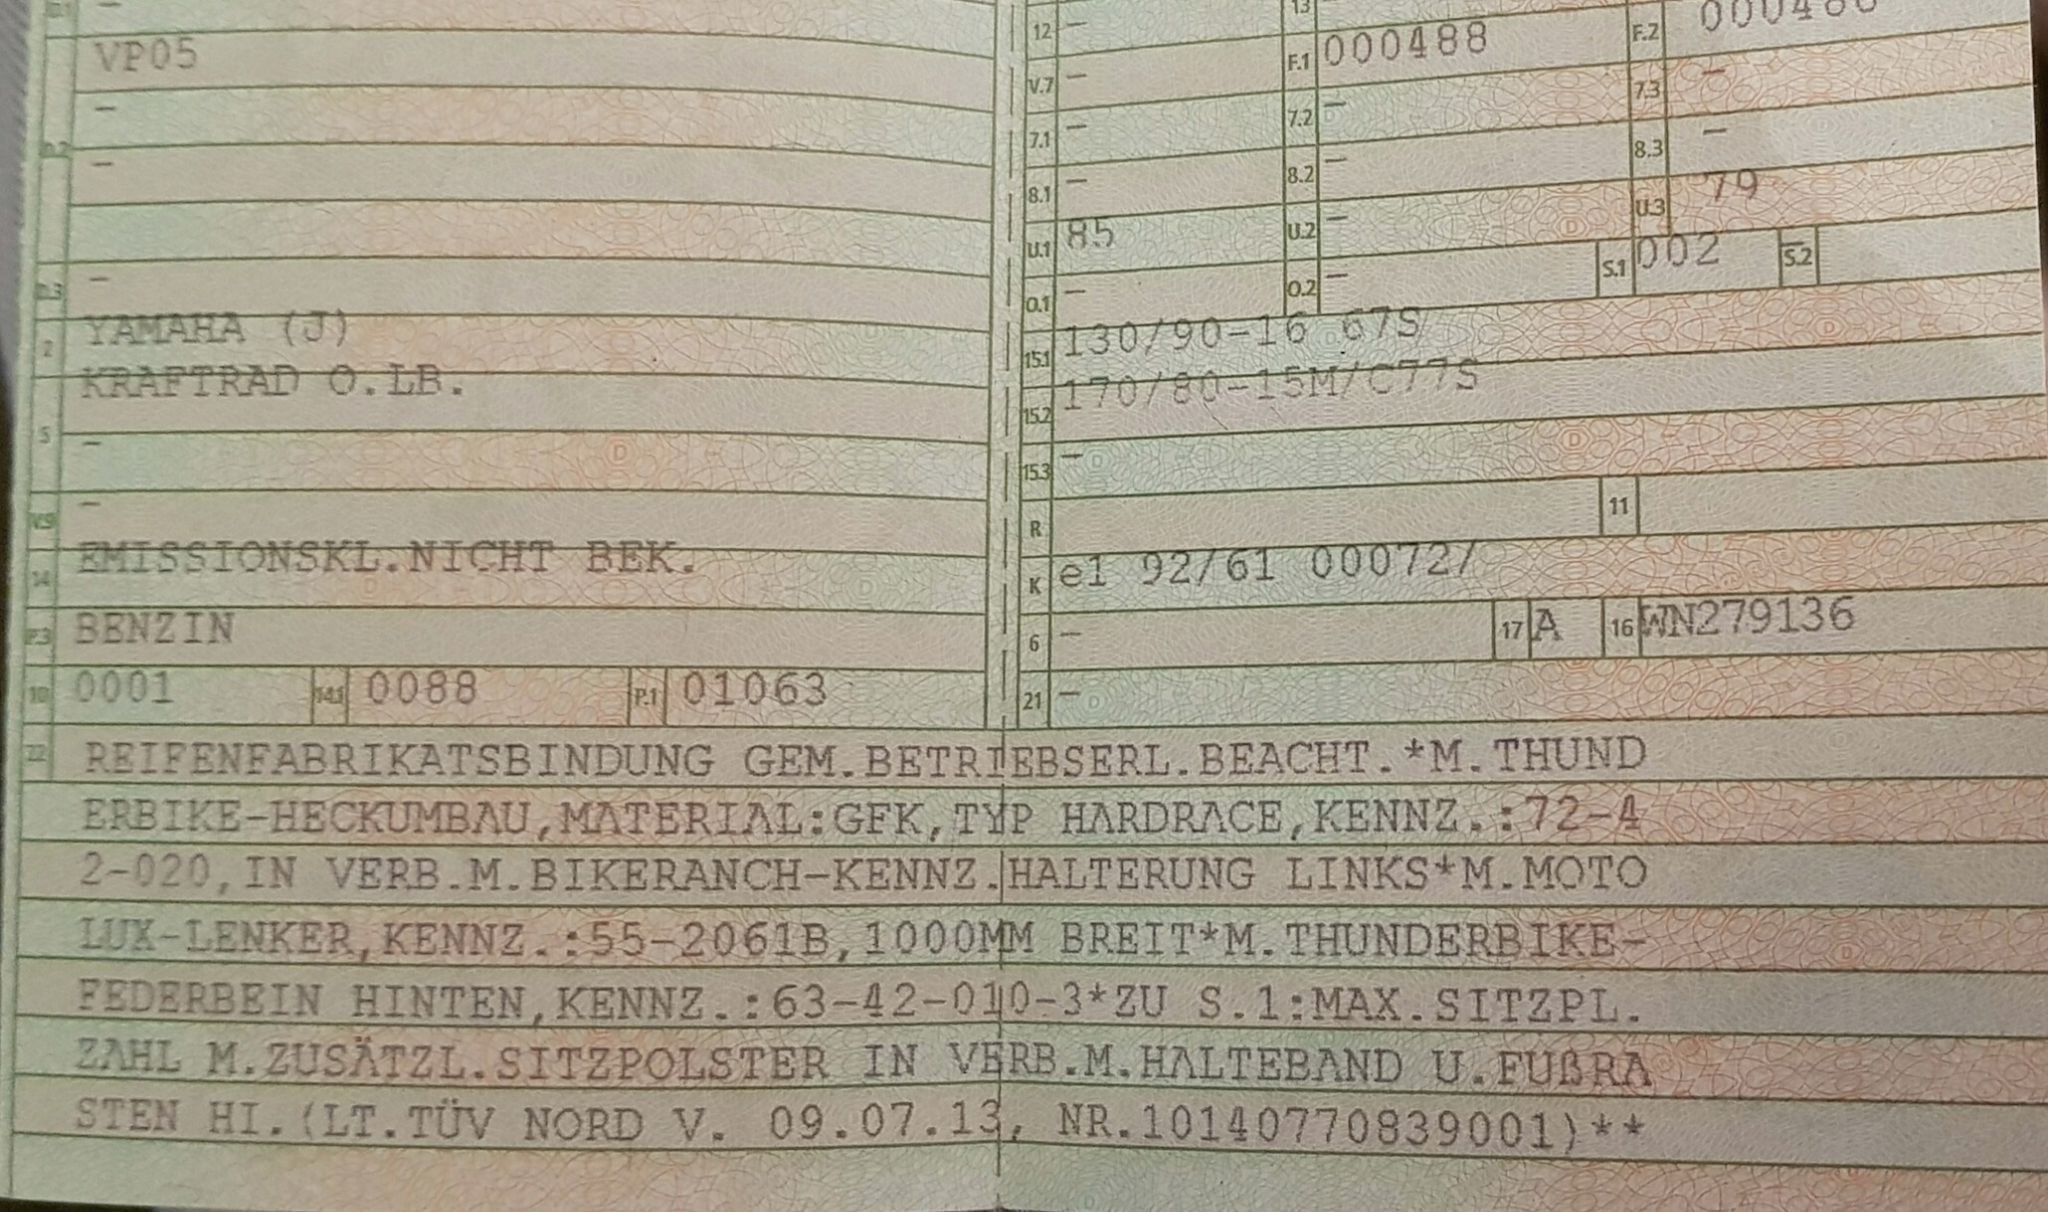 D.1 –
VP05
–
D.2 –
D.3 –
2 YAMAHA (J)
KRAFTRAD O.LB.
5 –
V.9 –
14 EMISSIONSKL.NICHT BEK.
P.3 BENZIN
10 0001 14.1 0088 P.1 01063
12 – 13
V.7 – F.1 000488 F.2
7.1 – 7.2 – 7.3 –
8.1 – 8.2 – 8.3 –
U.1 85 U.2 – U.3 79
O.1 – O.2 – S.1 002 S.2 –
15.1 130/90-16 67S
15.2 170/80-15M/C77S
15.3 –
R 11
K e1 92/61 00072/
6 – 17 A 16 WN279136
21 –
22 REIFENFABRIKATSBINDUNG GEM.BETRIEBSERL.BEACHT.*M.THUND
ERBIKE-HECKUMBAU,MATERIAL:GFK,TYP HARDRACE,KENNZ.:72-4
2-020,IN VERB.M.BIKERANCH-KENNZ.HALTERUNG LINKS*M.MOTO
LUX-LENKER,KENNZ.:55-2061B,1000MM BREIT*M.THUNDERBIKE-
FEDERBEIN HINTEN,KENNZ.:63-42-010-3*ZU S.1:MAX.SITZPL.
ZAHL M.ZUSÄTZL.SITZPOLSTER IN VERB.M.HALTEBAND U.FUßRA
STEN HI.(LT.TÜV NORD V. 09.07.13, NR.10140770839001)**